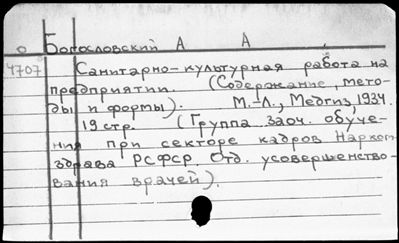 о Богословский А А
4707 Санитарно-культурная работа на
предприятии. (Содержание, мето-
ды и формы). М.-Л., Медгиз, 1934.
19 стр. (Группа заоч. обуче-
ния при секторе кадров Нарком-
здрава РСФСР. Отд. усовершенство-
вания врачей).